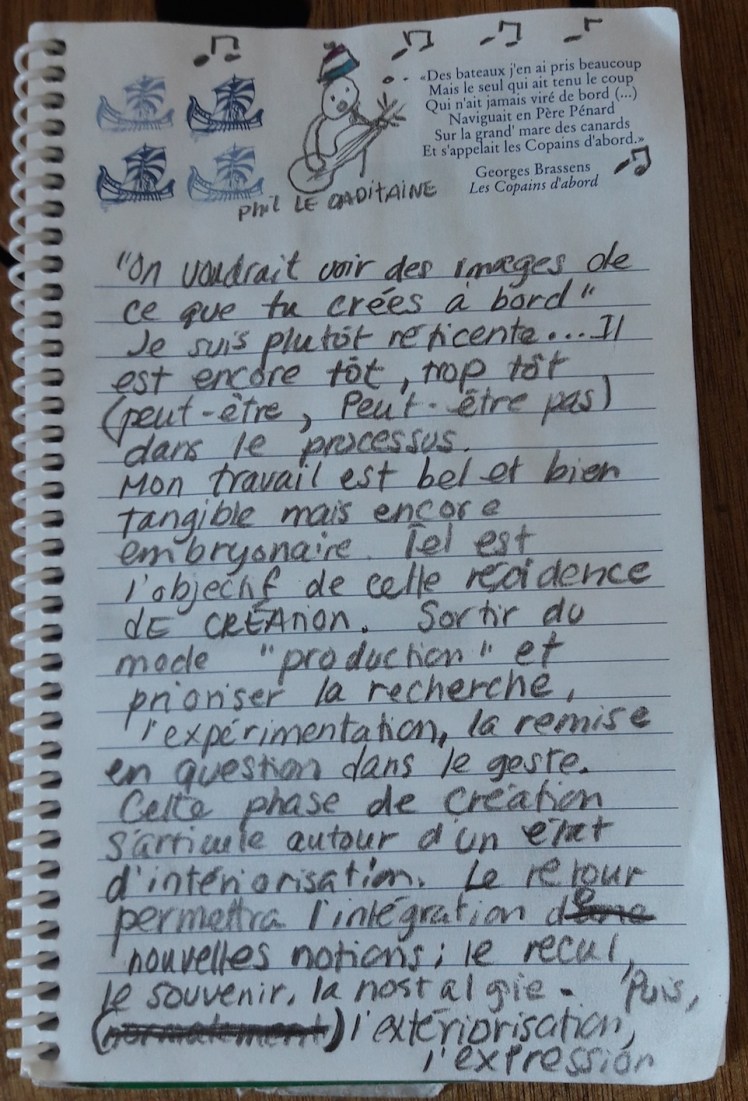 «Des bateaux j'en ai pris beaucoup
Mais le seul qui ait tenu le coup
Qui n'ait jamais viré de bord (...)
Naviguait en Père Pénard
Sur la grand' mare des canards
Et s'appelait les Copains d'abord.»
Georges Brassens
Les Copains d'abord
Phil LE CAPITAINE
"On voudrait voir des images de
ce que tu crées à bord"
Je suis plutôt réticente... Il
est encore tôt, trop tôt
(peut-être, Peut-être pas)
dans le processus.
Mon travail est bel et bien
tangible mais encore
embryonaire. Tel est
l'objectif de cette résidence
dE CRÉATION. Sortir du
mode "production" et
prioriser la recherche,
l'expérimentation, la remise
en question dans le geste.
Cette phase de création
s'articule autour d'un état
d'intériorisation. Le retour
permettra l'intégration de
nouvelles notions; le recul,
le souvenir, la nostalgie. Puis,
(normalement) l'extériorisation,
l'expression